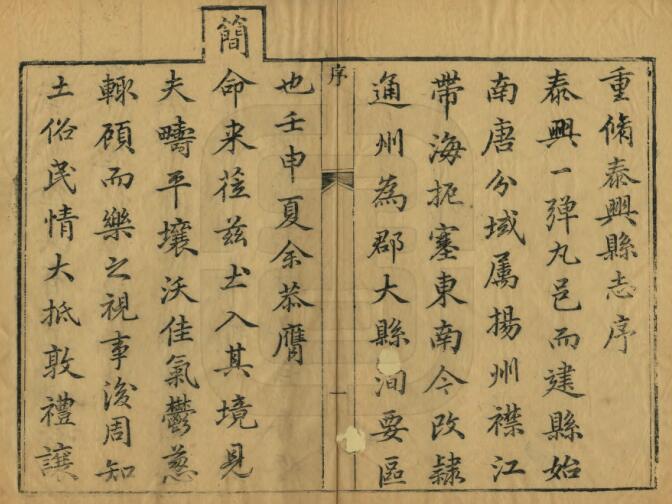 重脩泰興縣志序
泰興一彈丸邑而建縣始
南唐分域屬揚州襟江
帶海扼塞東南今改隸
通州為郡大縣洵要區
序
一
也壬申夏余恭膺
簡命来莅茲土入其境見
夫疇平壤沃佳氣鬱葱
輙顧而樂之視事後周知
土俗民情大抵敦禮讓